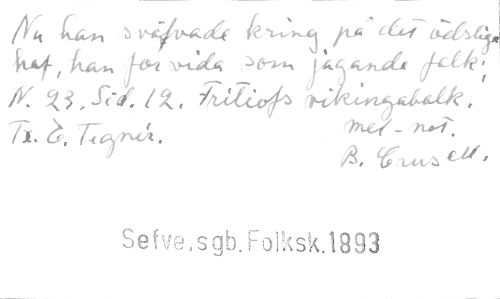 Nu han sväfvade kring på det ödsliga
haf, han for vida som jagande falk;
N. 23. Sid. 12. Fritiofs vikingabalk.
Tx. E. Tegnér. mel-not.
B. Crusell.
Sefve, sgb. Folksk. 1893